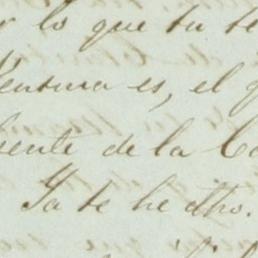 lo que tu te
Ventura es, el
sente de la Co
Ya te he dho.